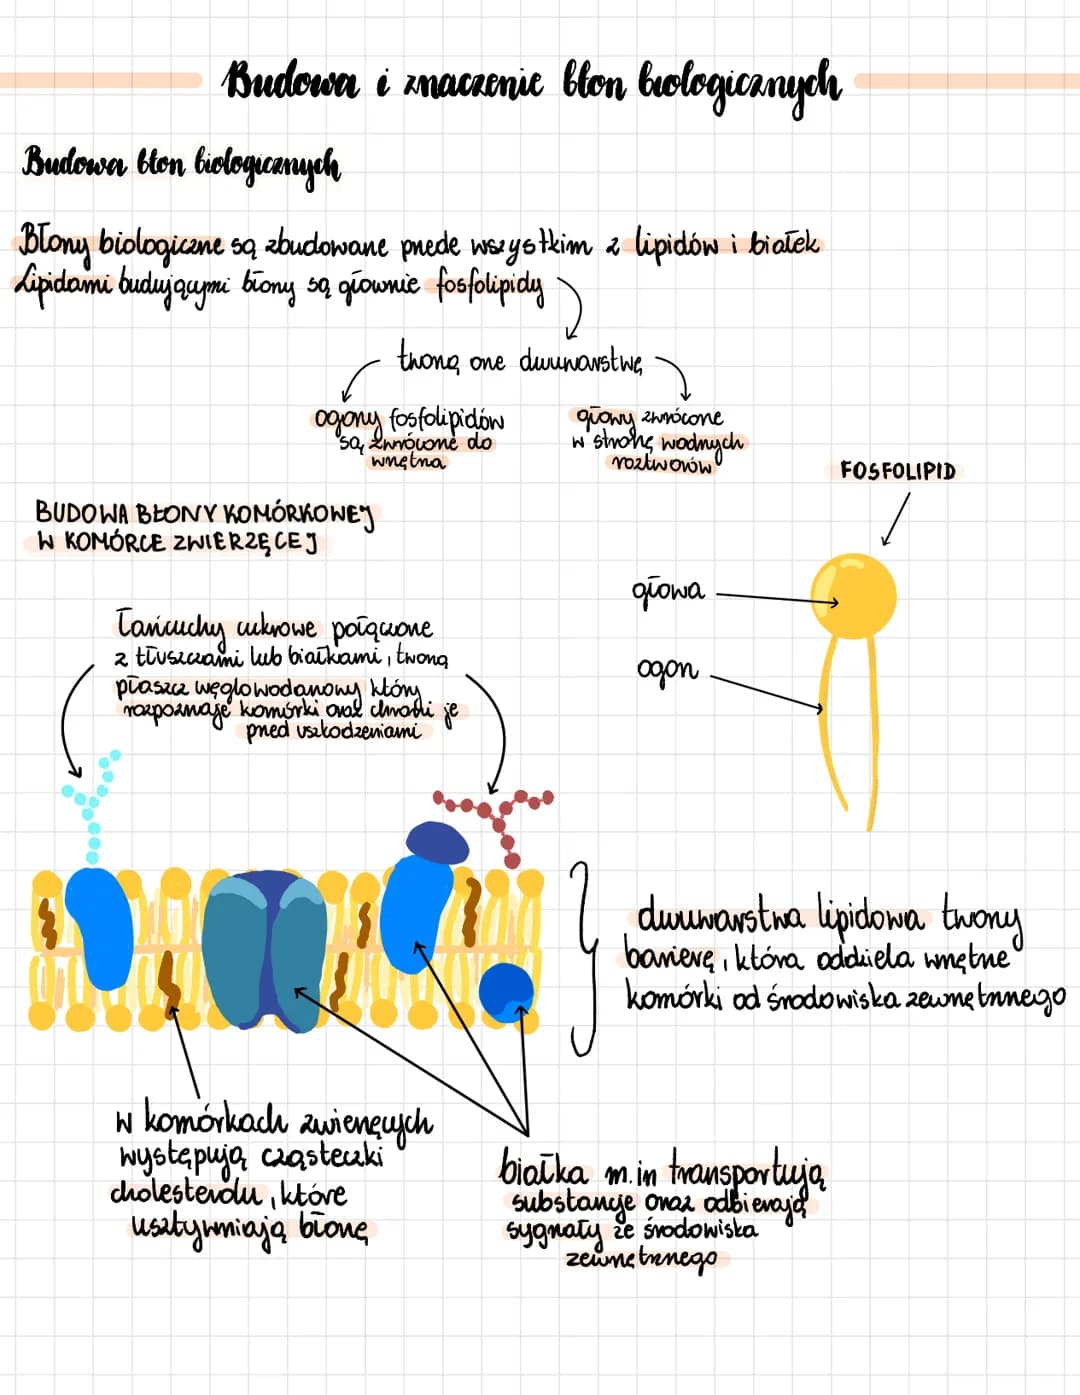 Budowa i znaczenie błon biologicznych
Budowa błon biologicznych
Błony biologiczne są zbudowane przede wszystkim z lipidów i białek
Lipidami budującymi błony są głównie fosfolipidy
tworzą one dwuwarstwę
ogony fosfolipidów
są zwrócone do
wnętrza
głowy zwrócone
w stronę wodnych
roztworów
FOSFOLIPID
BUDOWA BŁONY KOMÓRKOWEJ
W KOMÓRCE ZWIERZĘCEJ
głowa
ogon
Łańcuchy cukrowe połączone
z tłuszczami lub białkami, tworzą
płaszcz węglowodanowy który
rozpoznaje komórki oraz chroni je
przed uszkodzeniami
dwuwarstwa lipidowa tworzy
barierę, która oddziela wnętrze
komórki od środowiska zewnętrznego
w komórkach zwierzęcych
występują cząsteczki
cholesterolu, które
usztywniają błonę
białka m.in transportują
substancje oraz odbierają
sygnały ze środowiska
zewnętrznego